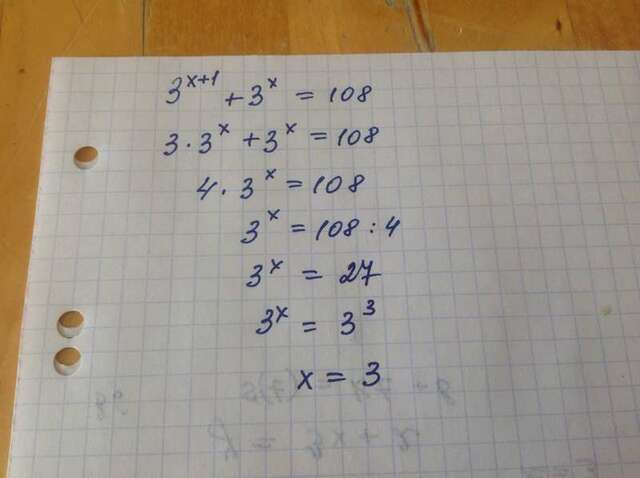 3^{x+1} + 3^x = 108
3 · 3^x + 3^x = 108
4 · 3^x = 108
3^x = 108 : 4
3^x = 27
3^x = 3^3
x = 3